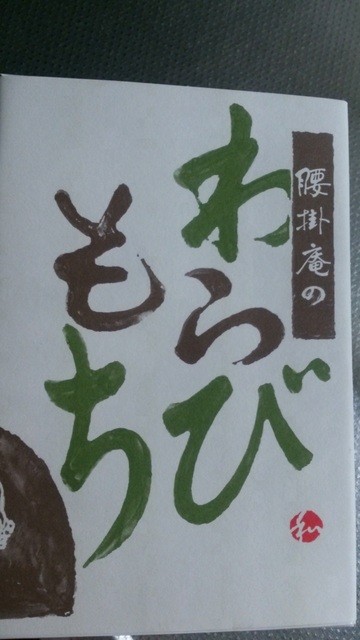 腰掛庵の
わらび
もち